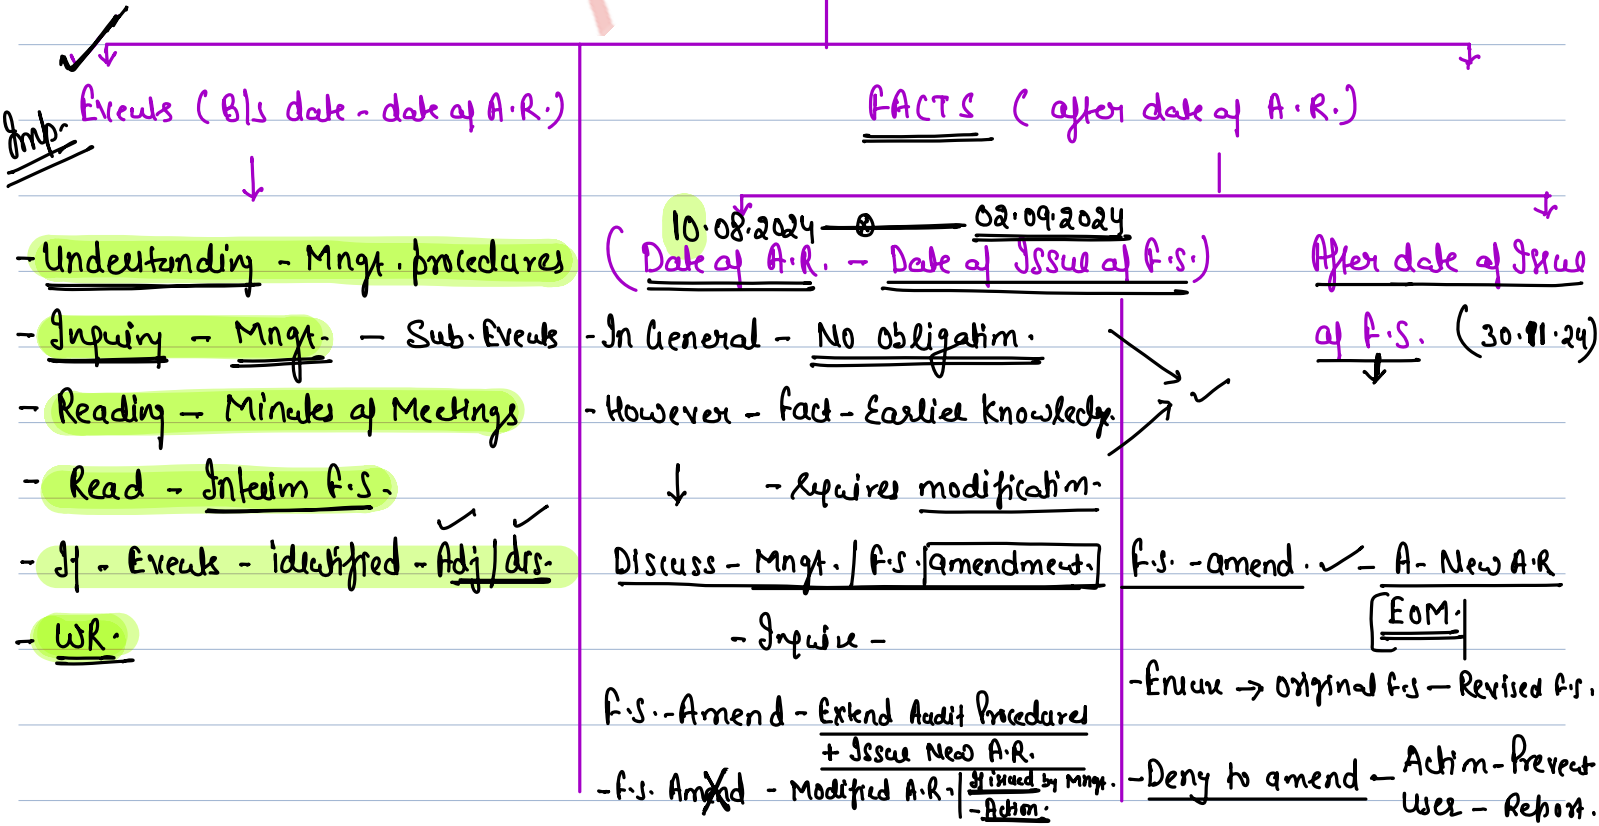 Imp.
Events (B/s date - date of A.R.)
- Understanding - Mngt. procedures
- Inquiry - Mngt. - Sub. Events
- Reading - Minutes of Meetings
- Read - Interim F.S.
- If - Events - identified - Adj/dis.
- WR.
FACTS (after date of A.R.)
10.08.2024 - 02.09.2024
(Date of A.R. - Date of Issue of F.S.)
- In General - No obligation.
- However - Fact - Earlier Knowledge.
- Requires modification.
Discuss - Mngt. / F.S. amendment.
- Inquire -
F.S. - Amend - Extend Audit Procedures
+ Issue New A.R.
- F.S. Amend - Modified A.R. | If issued by Mngt.
- Action.
After date of Issue
of F.S. (30.11.24)
F.S. - amend. ✓ - A - New A.R
[EOM.]
- Ensure → original F.S - Revised F.S.
- Deny to amend - Action - Prevent
User - Report.